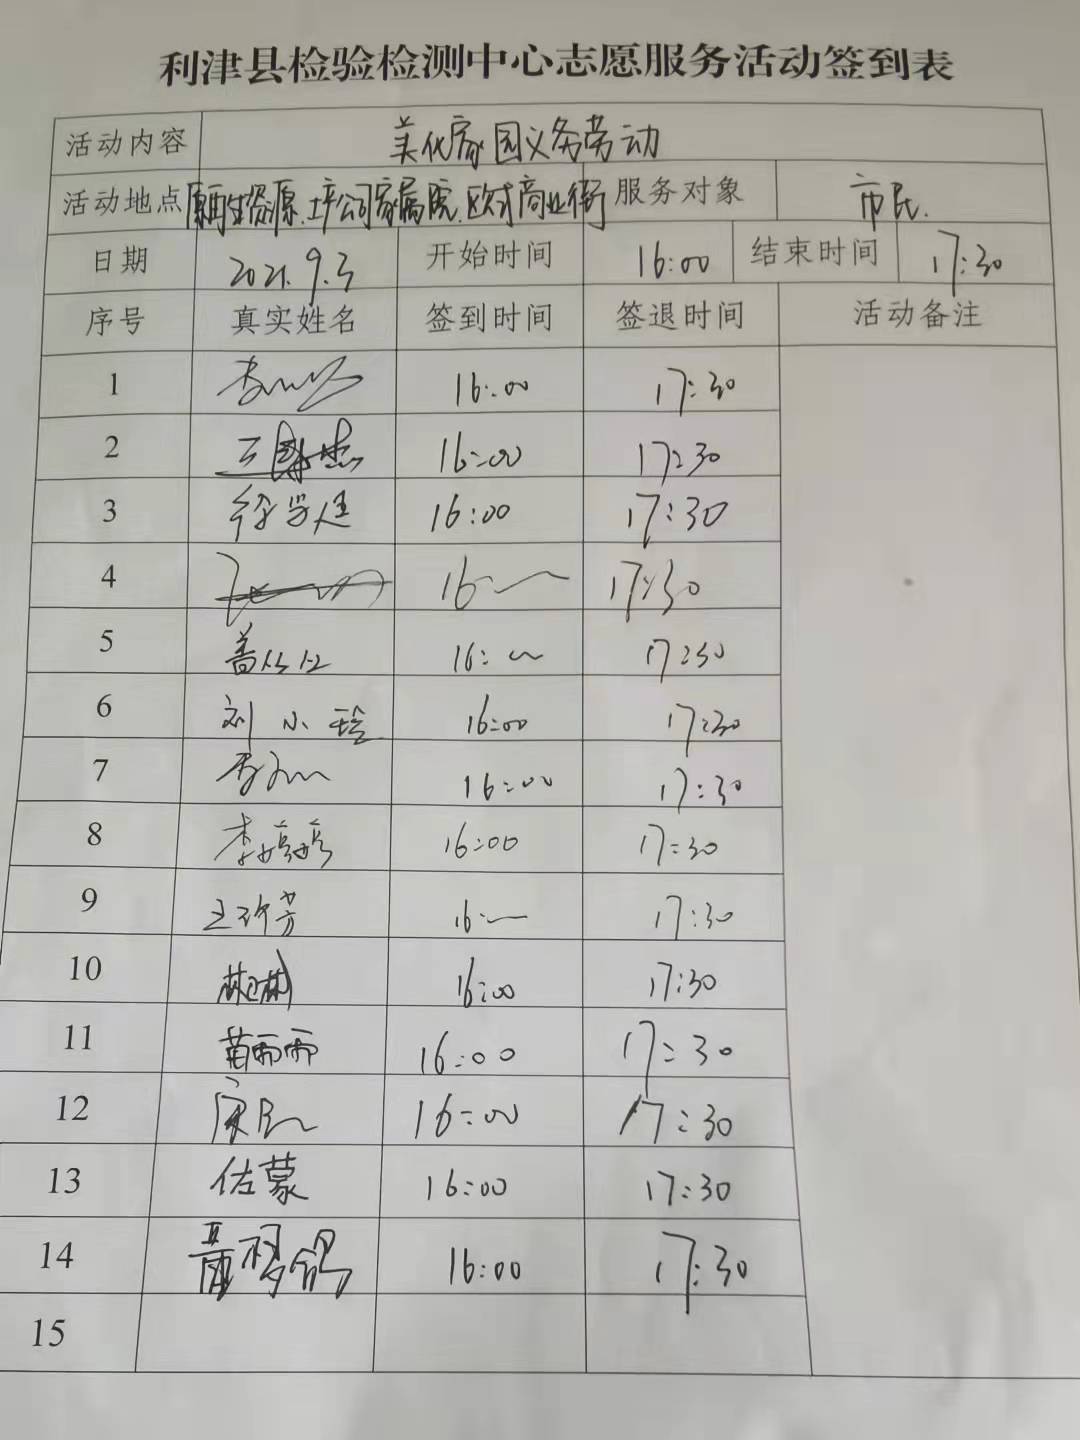 利津县检验检测中心志愿服务活动签到表
活动内容 美化家园义务劳动
活动地点 原再生资源、土产公司家属院、欧式商业街 服务对象 市民.
日期 2021.9.3 开始时间 16:00 结束时间 17:30
序号 真实姓名 签到时间 签退时间 活动备注
1 16:00 17:30
2 16:00 17:30
3 16:00 17:30
4 16: 17:30
5 16: 17:30
6 刘小玲 16:00 17:30
7 16:00 17:30
8 李婷婷 16:00 17:30
9 16: 17:30
10 16:00 17:30
11 苗雨雨 16:00 17:30
12 16:00 17:30
13 佐蒙 16:00 17:30
14 16:00 17:30
15